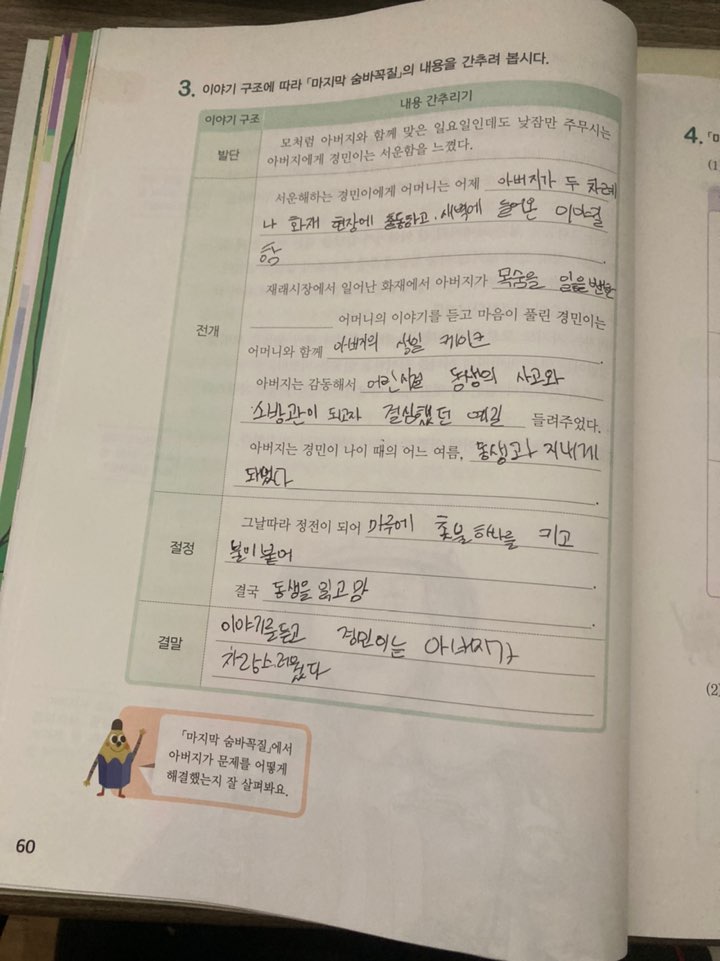 3. 이야기 구조에 따라 「마지막 숨바꼭질」의 내용을 간추려 봅시다.
이야기 구조 내용 간추리기
발단
모처럼 아버지와 함께 맞은 일요일인데도 낮잠만 주무시는
아버지에게 경민이는 서운함을 느꼈다.
전개
서운해하는 경민이에게 어머니는 어제 아버지가 두 차례
나 화재 현장에 출동하고, 새벽에 들어온 이야길
함 .
재래시장에서 일어난 화재에서 아버지가 목숨을 잃을뻔한
어머니의 이야기를 듣고 마음이 풀린 경민이는
어머니와 함께 아버지의 생일 케이크 .
아버지는 감동해서 어린시절 동생의 사고와
소방관이 되고자 결심했던 얘길 들려주었다.
아버지는 경민이 나이 때의 어느 여름, 동생과 지내게
되었다 .
절정
그날따라 정전이 되어 마루에 촛불 하나를 키고
불이붙어 .
결국 동생을 잃고 맘 .
결말
이야기를듣고 경민이는 아버지가
자랑스러웠다
「마지막 숨바꼭질」에서
아버지가 문제를 어떻게
해결했는지 잘 살펴봐요.
60
4. 「마
(1)
(2)